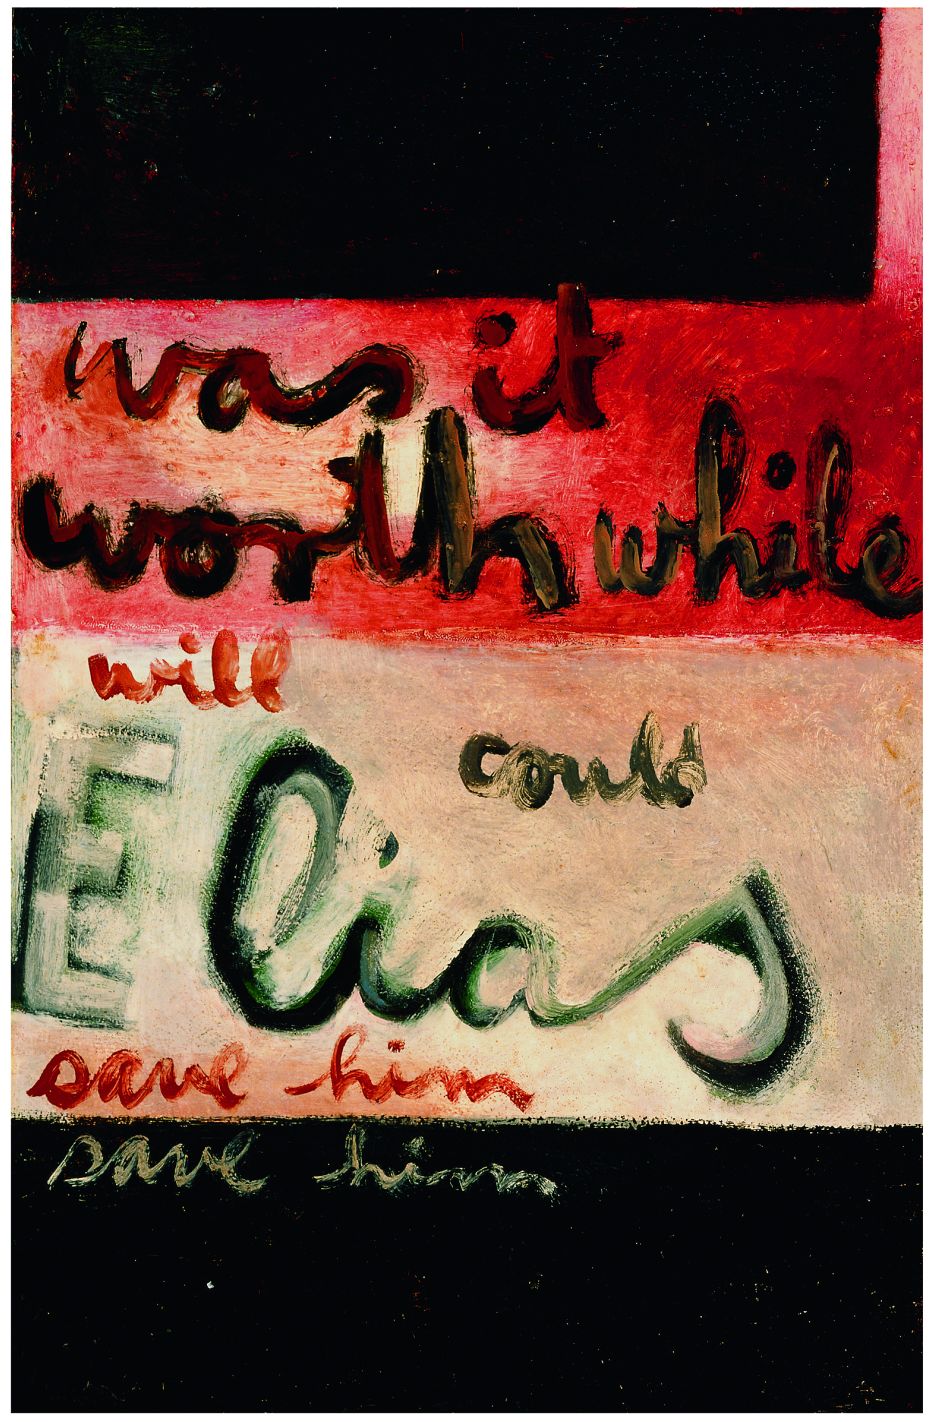 was it
worth while
will
could
Elias
save him
save him